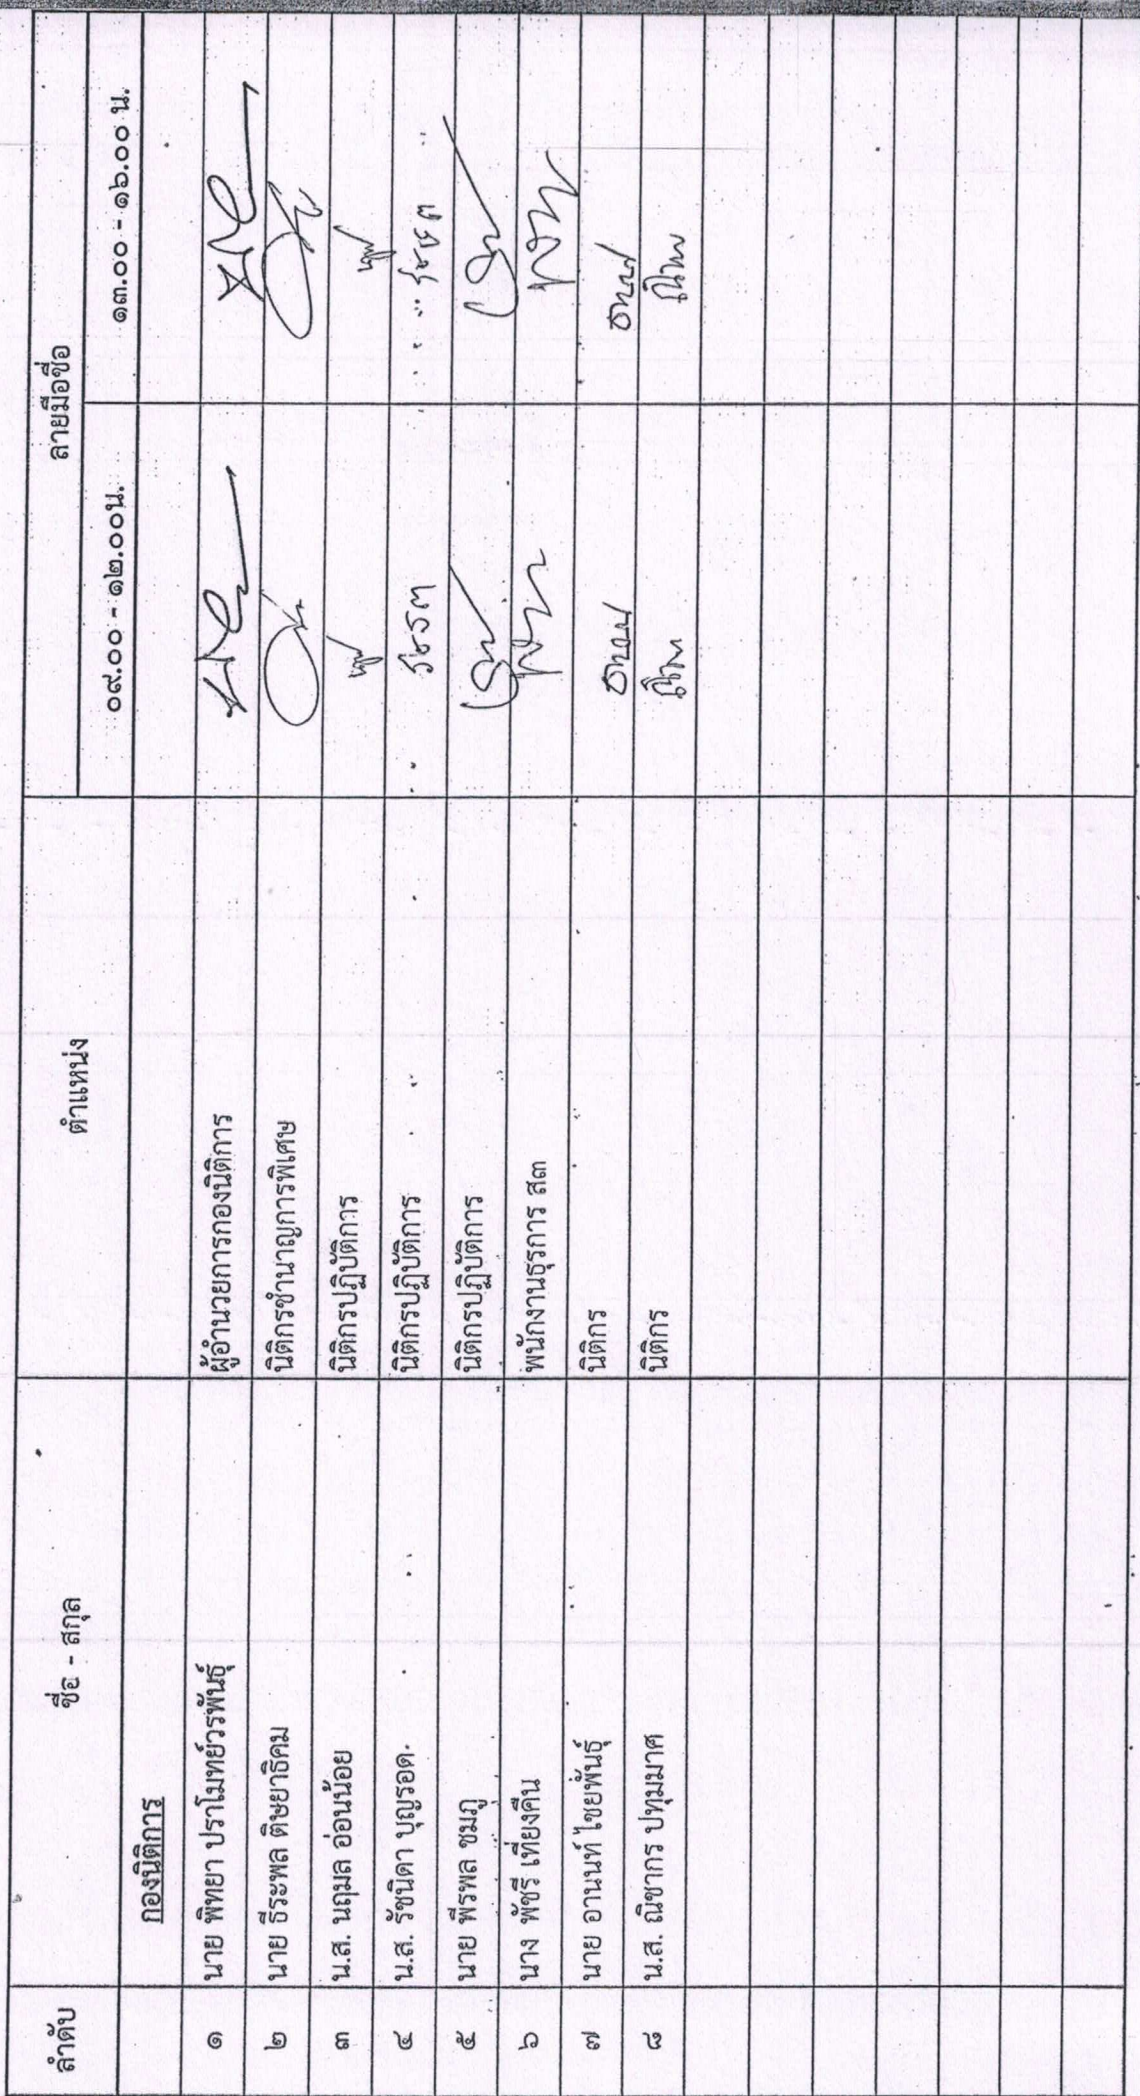 ลำดับ ชื่อ - สกุล ตำแหน่ง ลายมือชื่อ
๐๙.๐๐ - ๑๒.๐๐น. ๑๓.๐๐ - ๑๖.๐๐ น.
กองนิติการ
๑ นาย พิทยา ปราโมทย์วรพันธุ์ ผู้อำนวยการกองนิติการ
๒ นาย ธีระพล ดิษยาธิคม นิติกรชำนาญการพิเศษ
๓ น.ส. นฤมล อ่อนน้อย นิติกรปฏิบัติการ
๔ น.ส. รัชนิดา บุญรอด นิติกรปฏิบัติการ
๕ นาย พีรพล ชมภู นิติกรปฏิบัติการ
๖ นาง พัชรี เที่ยงคืน พนักงานธุรการ ส๓
๗ นาย อานนท์ ไชยพันธุ์ นิติกร
๘ น.ส. ณิชากร ปทุมมาศ นิติกร